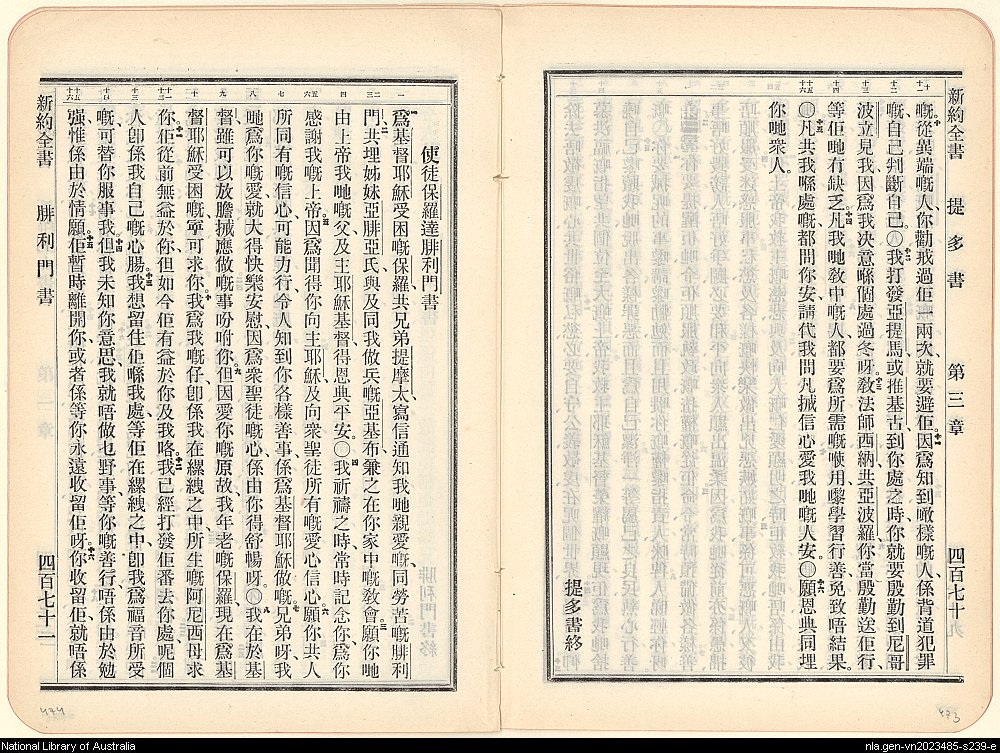 新約全書 提多書 第三章 四百七十
嘅從異端嘅人你勸戒過佢一兩次就要避佢因爲知到噉樣嘅人係背道犯罪
嘅自己判斷自己〇我打發亞提馬或推基古到你處之時你就要殷勤到尼哥
波立見我因爲我决意喺個處過冬呀教法師西納共亞波羅你當殷勤送佢行
等佢哋有缺乏凡我哋教中嘅人都要爲所需嘅使用嚟學習行善免致唔結果
〇凡共我喺處嘅都問你安請代我問凡𢬿信心愛我哋嘅人安〇願恩典同埋
你哋衆人
提多書終
新約全書 腓利門書 四百七十一
使徒保羅達腓利門書
爲基督耶穌受困嘅保羅共兄弟提摩太寫信通知我哋親愛嘅同勞苦嘅腓利
門共埋姊妹亞腓亞氏與及同我做兵嘅亞基布兼之在你家中嘅教會願你哋
由上帝我哋嘅父及主耶穌基督得恩典平安〇我祈禱之時常時記念你爲你
感謝我嘅上帝因爲聞得你向主耶穌及向衆聖徒所有嘅愛心信心願你共人
所同有嘅信心可能力行令人知到你各樣善事係爲基督耶穌做嘅兄弟呀我
哋爲你嘅愛就大得快樂安慰因爲衆聖徒嘅心係由你得舒暢呀〇我在於基
督雖可以放膽𢬿應做嘅事吩咐你但因愛你嘅原故我年老嘅保羅現在爲基
督耶穌受困嘅寧可求你我爲我嘅仔卽係我在縲絏之中所生嘅阿尼西母求
你佢從前無益於你但如今佢有益於你及我咯我已經打發佢番去你處呢個
人卽係我自己嘅心腸我想留住佢喺我處等佢在縲絏之中卽我爲福音所受
嘅可替你服事我但我未知你意思我就唔做乜野事等你嘅善行唔係由於勉
强惟係由於情願佢暫時離開你或者係等你永遠收留佢呀你收留佢就唔係
474
473
National Library of Australia
nla.gen-vn2023485-s239-e